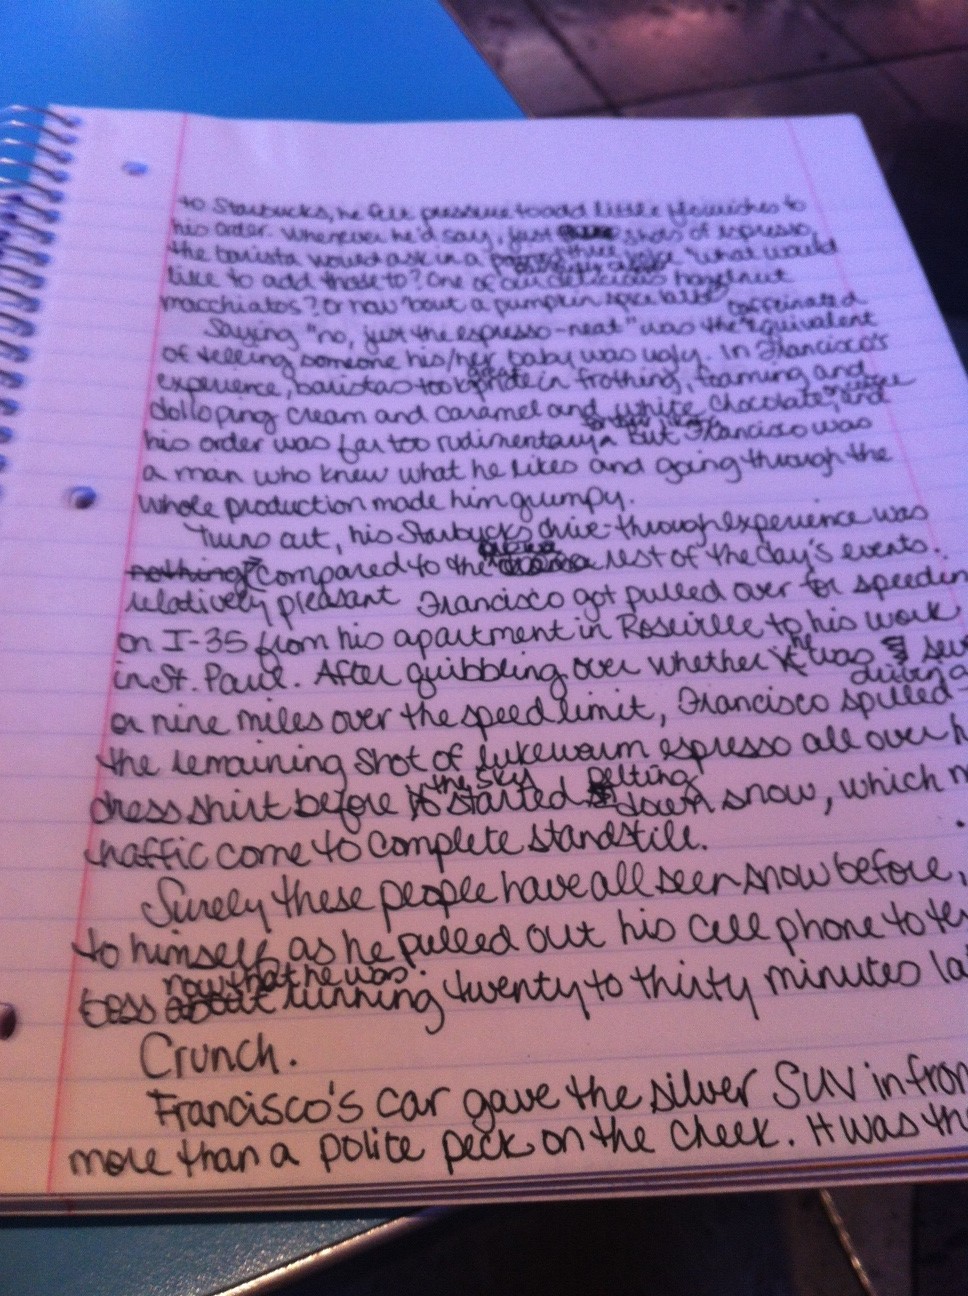 to Starbucks, he felt pressure to add little flourishes to
his order. Whenever he'd say, just shots of espresso,
the barista would ask in a voice "what would
like to add those to? One of our delicious hazelnut
macchiatos? Or how 'bout a pumpkin spice latte
caffeinated
Saying "no, just the espresso-neat" was the equivalent
of telling someone his/her baby was ugly. In Francisco's
experience, baristas took pride in frothing, foaming and
dolloping cream and caramel and white chocolate, and
his order was far too rudimentary. But Francisco was
a man who knew what he likes and going through the
whole production made him grumpy.
Turns out, his Starbucks drive-through experience was
nothing compared to the rest of the day's events.
relatively pleasant Francisco got pulled over for speedin
on I-35 from his apartment in Roseville to his work
in St. Paul. After quibbling over whether he was
or nine miles over the speed limit, Francisco spilled
the remaining shot of lukewarm espresso all over h
the sky pelting
dress shirt before started down snow, which m
traffic come to complete standstill.
Surely these people have all seen snow before,
to himself as he pulled out his cell phone to te
now that he was
boss running twenty to thirty minutes la
Crunch.
Francisco's car gave the silver SUV in fron
more than a polite peck on the cheek. It was th